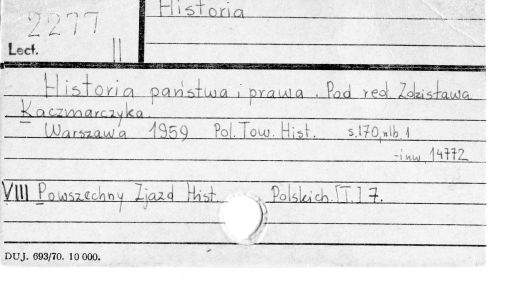 2277
Historia
Lect. II
Historia państwa i prawa. Pod red. Zdzisława
Kaczmarczyka.
Warszawa 1959 Pol. Tow. Hist. s.170, nlb 1
-inw. 14772
VIII Powszechny Zjazd Hist. Polskich. [T.] 7.
DUJ. 693/70. 10 000.